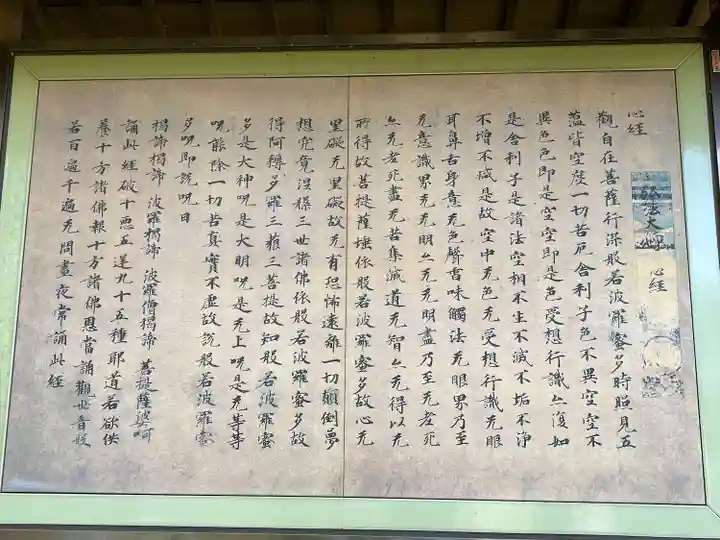 弘法大師
心経
心経
觀自在菩薩行深般若波羅蜜多時照見五
蘊皆空度一切苦厄舍利子色不異空空不
異色色即是空空即是色受想行識亦復如
是舍利子是諸法空相不生不滅不垢不淨
不増不減是故空中无色无受想行識无眼
耳鼻舌身意无色聲香味觸法无眼界乃至
无意識界无无明亦无无明盡乃至无老死
亦无老死盡无苦集滅道无智亦无得以无
所得故菩提薩埵依般若波羅蜜多故心无
罣礙无罣礙故无有恐怖遠離一切顛倒夢
想究竟涅槃三世諸佛依般若波羅蜜多故
得阿耨多羅三藐三菩提故知般若波羅蜜
多是大神呪是大明呪是无上呪是无等等
呪能除一切苦真實不虚故説般若波羅蜜
多呪即説呪曰
揭諦揭諦 波羅揭諦 波羅僧揭諦 菩提薩婆呵
誦此經破十惡五逆九十五種耶道若欲供
養十方諸佛報十方諸佛恩當誦觀世音般
若百遍千遍无間晝夜常誦此經